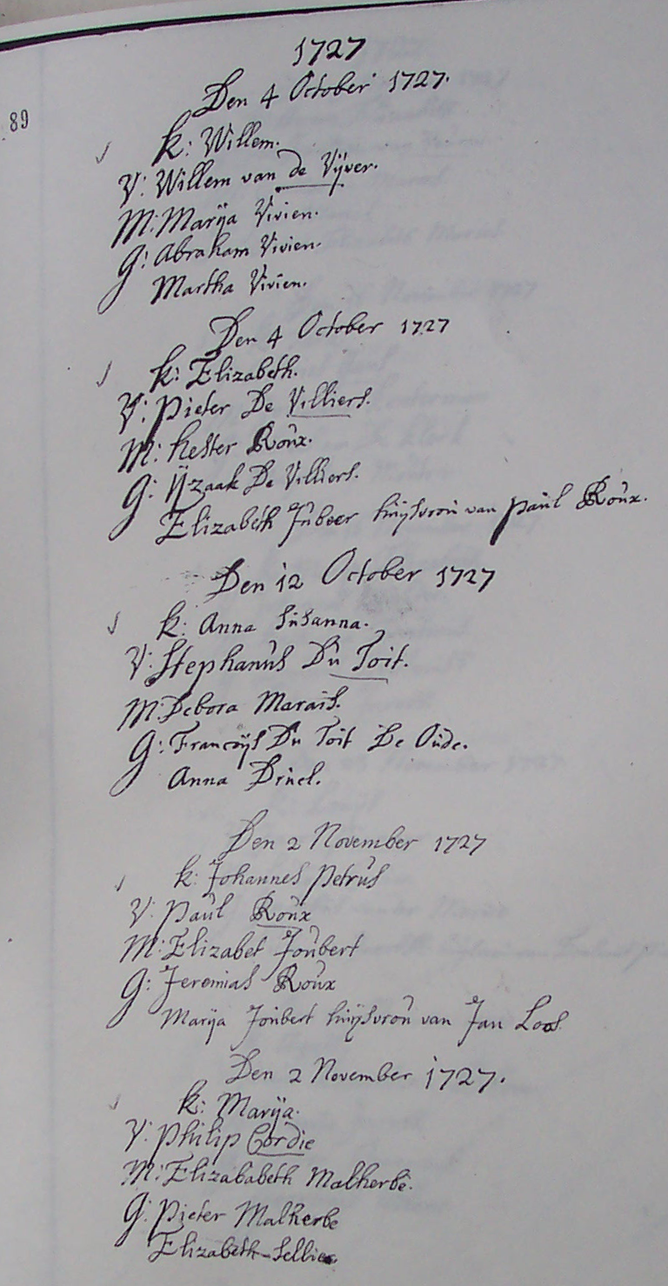 1727
89
Den 4 October 1727.
k: Willem.
V: Willem van de Vÿver.
M: Marÿa Vivien.
G: Abraham Vivien.
Martha Vivien.
Den 4 October 1727
k: Elizabeth.
V: Pieter De Villiers.
M: hester Roúx.
G: Yzaak De Villiers.
Elizabeth Jubeer huÿsvroú van Paúl Roúx.
Den 12 October 1727
k: Anna Súsanna.
V: Stephanús Du Toit.
M: Debora Marais.
G: Francoÿs Du Toit De Oúde.
Anna
Den 2 November 1727
k: Johannes Petrús
V: Paúl Roúx
M: Elizabet Joúbert
G: Jeremias Roúx
Marÿa Joúbert húÿsvroú van Jan Loos
Den 2 November 1727.
k: Marÿa.
V: Philip Cordie
M: Elizababeth Malherbe.
G: Pieter Malherbe
Elizabeth Sellier